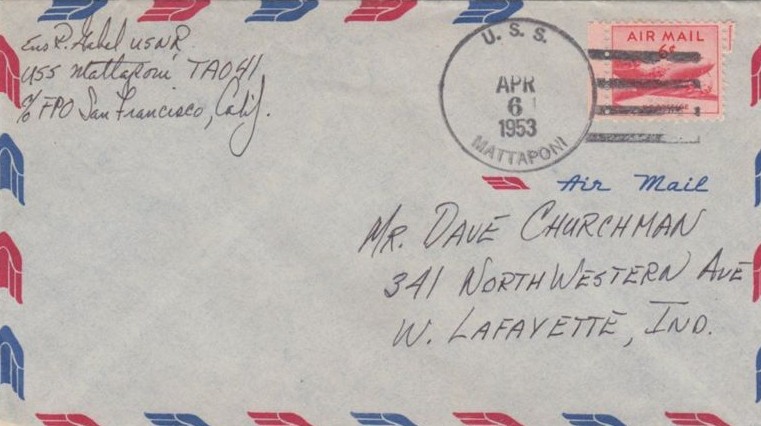 Ens R. Gabel USNR
USS Mattaponi TAO41
c/o FPO San Francisco, Calif.
U. S. S.
APR
6
1953
MATTAPONI
AIR MAIL
6¢
Air Mail
MR. DAVE CHURCHMAN
341 NORTHWESTERN AVE
W. LAFAYETTE, IND.